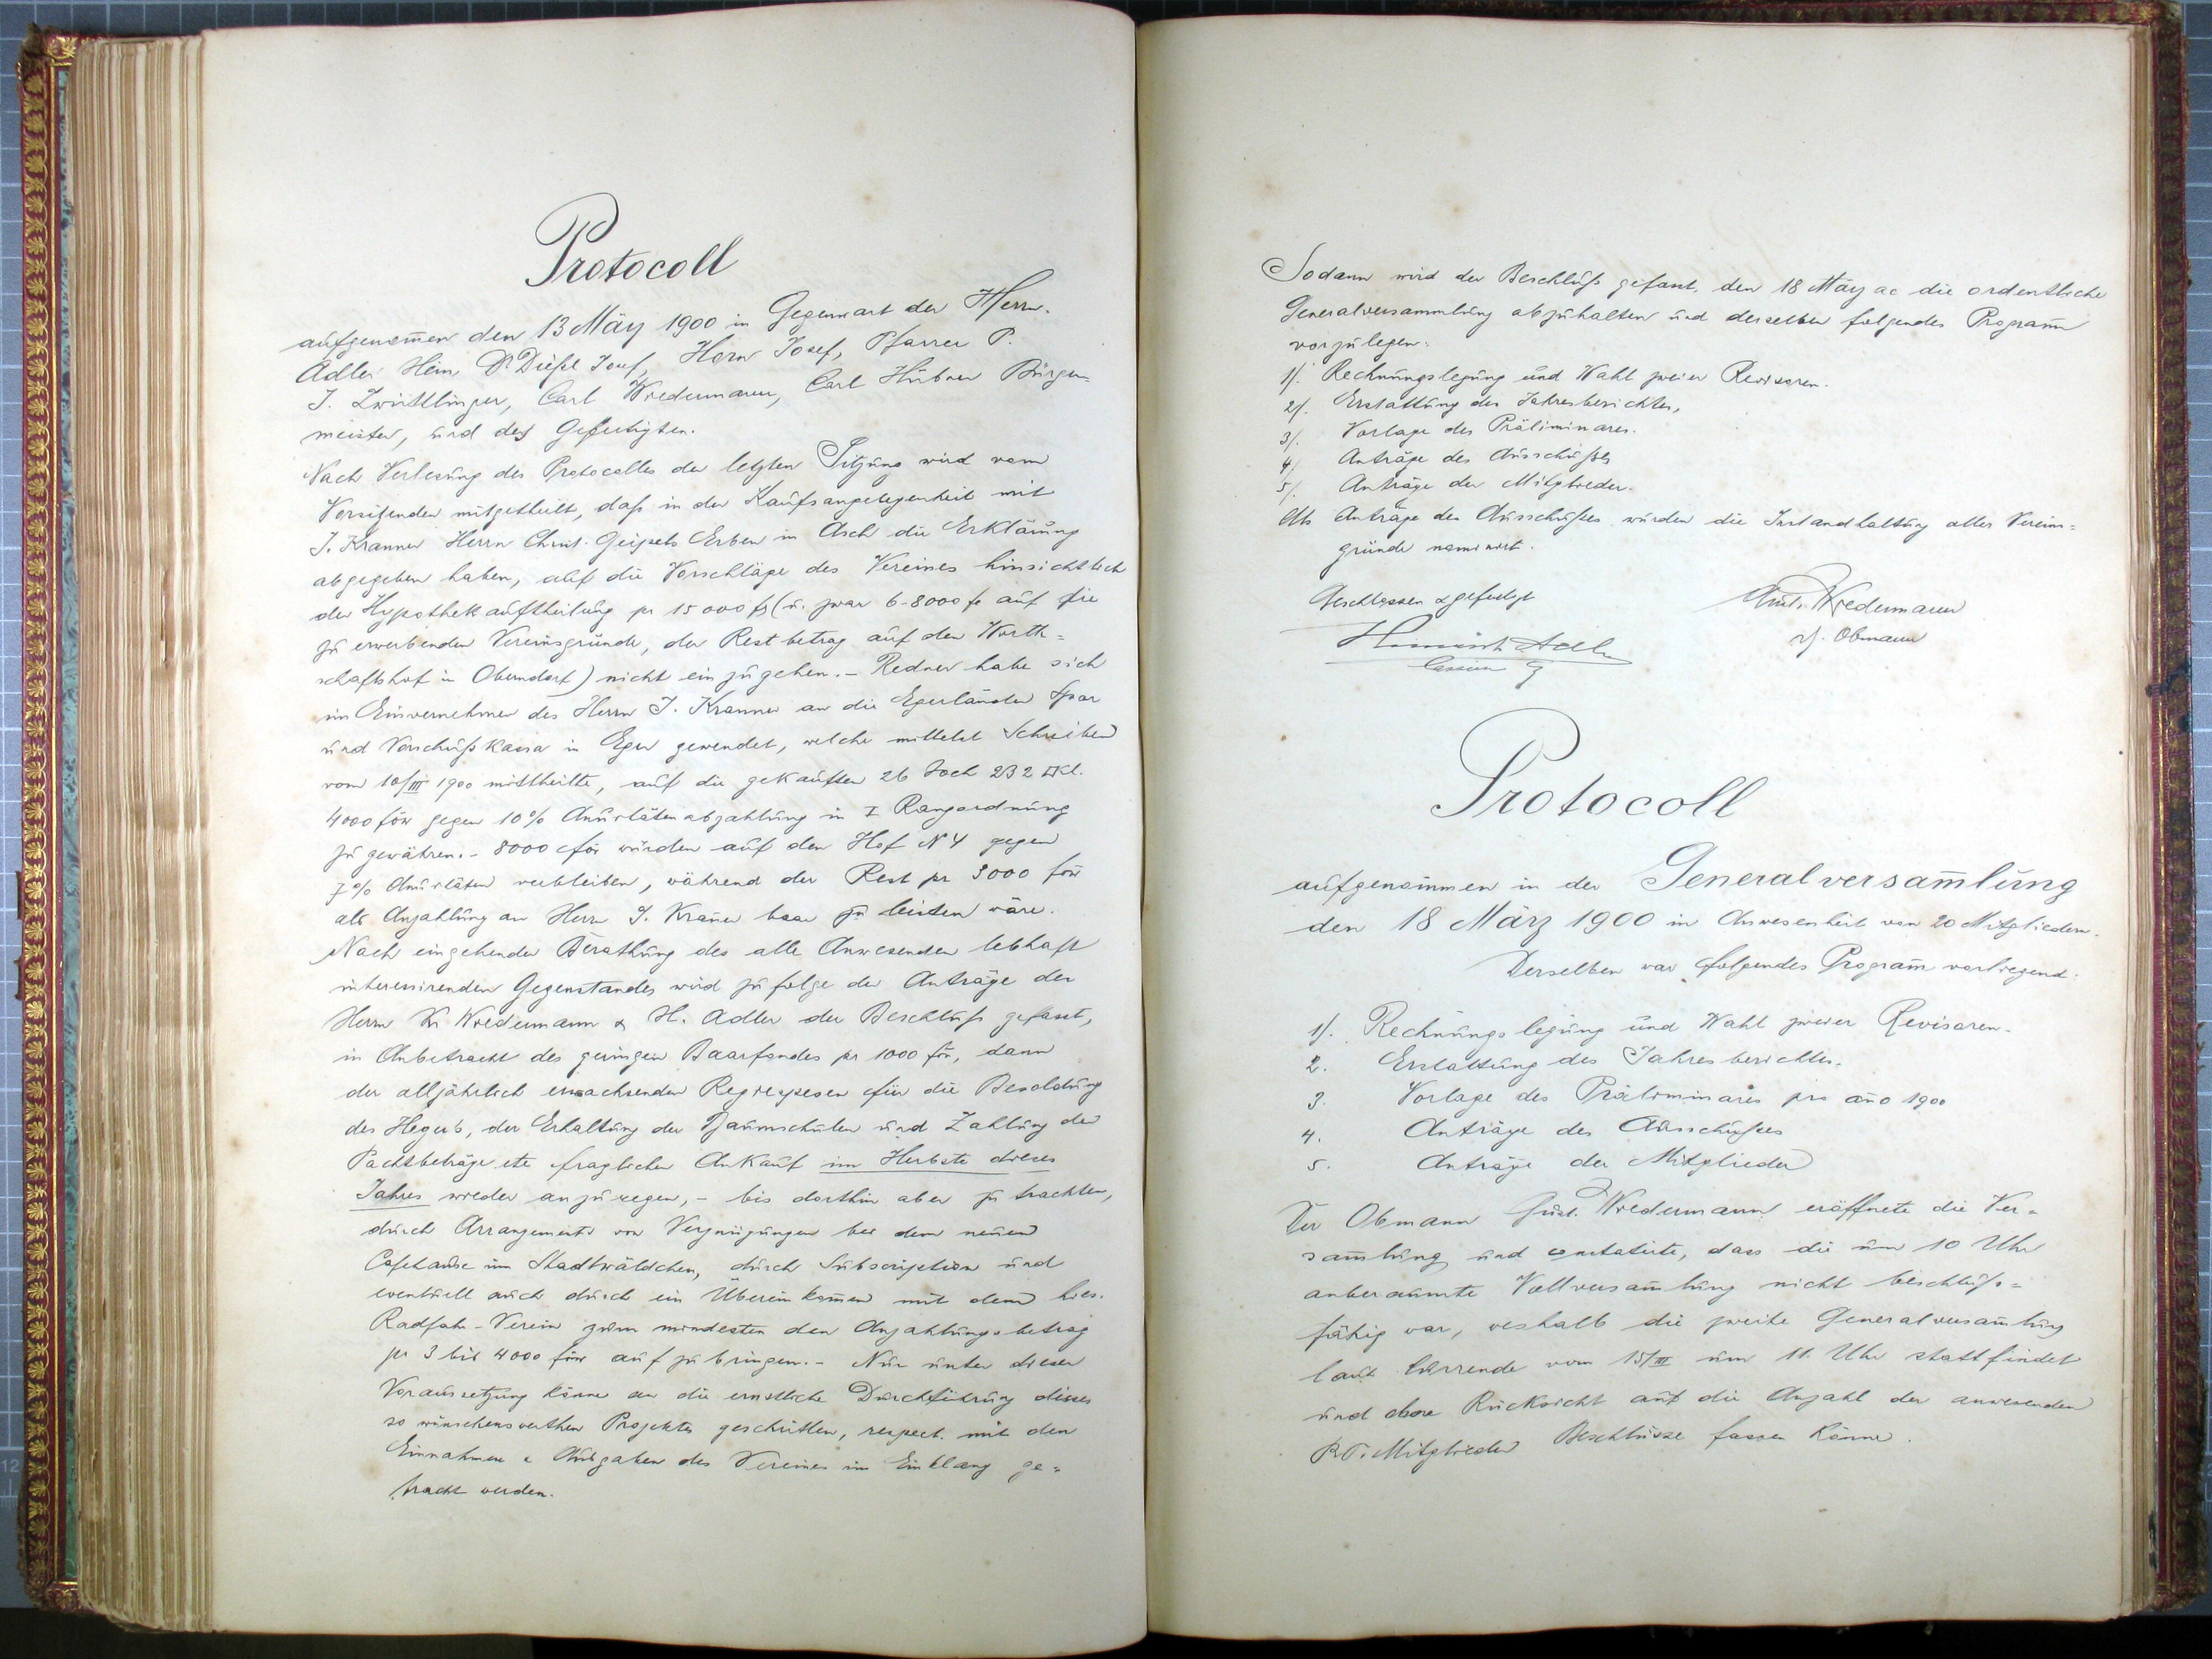 Protocoll
aufgenom̄en den 13 März 1900 in Gegenwart der Herrn
Adler Hein, Dr Dießl Josef, Horn Josef, Pfarrer P.
J. Zwittlinger, Carl Wiedermann, Carl Hübner Bürger=
meister, und des Gefertigten.
Nach Verlesung des Protocolles der letzten Sitzung wird vom
Vorsitzenden mitgetheilt, daß in der Kaufsangelegenheit mit
J. Kranner Herrn Christ. Geipels Erben in Asch die Erklärung
abgegeben haben, auf die Vorschläge des Vereines hinsichtlich
der Hypothekauftheilung pr 15000 fl (u. zwar 6-8000 fl auf die
zu erwerbenden Vereinsgründe, der Restbetrag auf den Wirth=
schaftshof in Oberndorf) nicht einzugehen. – Redner habe sich
im Einvernehmen des Herrn J. Kranner an die Egerländer Spar
und Vorschußkassa in Eger gewendet, welche mittelst Schreiben
vom 10/III 1900 mittheilte, auf die gekauften 26 Joch 232 □Kl.
4000 fl gegen 10% Annuitätenabzahlung in I Rangordnung
zu gewähren. – 8000 fl würden auf den Hof N 4 gegen
7% Annuitäten verbleiben, während der Rest pr 3000 fl
als Anzahlung an Herrn J. Kraner baar zu leisten wäre.
Nach eingehender Berathung des alle Anwesenden lebhaft
interessirenden Gegenstandes wird zu folge der Anträge der
Herrn K. Wiedermann & H. Adler der Beschluß gefasst,
in Anbetracht des geringen Baarfondes pr 1000 fl, dann
der alljährlich erwachsenden Regiespesen für die Besoldung
des Hegers, der Erhaltung der Baumschulen und Zahlung der
Pachtbeträge etc fraglichen Ankauf im Herbste dieses
Jahres wieder anzuregen, – bis dorthin aber zu trachten,
durch Arrangements von Vergnügungen bei dem neuen
Cafehause im Stadtwäldchen, durch Subscription und
eventuell auch durch ein Übereinkom̄en mit dem hies.
Radfahr-Verein zum mindesten den Anzahlungsbetrag
pr 3 bis 4000 fl aufzubringen. – Nur unter dieser
Voraussetzung könne an die ernstliche Durchführung dieses
so wünschenswerthen Projektes geschritten, respect. mit den
Einnahmen & Ausgaben des Vereines im Einklang ge=
bracht werden.
Sodann wird der Beschluß gefasst, den 18 März ac die ordentliche
Generalversammlung abzuhalten und derselben folgendes Program̄
vorzulegen:
1/. Rechnungslegung und Wahl zweier Revisoren.
2/. Erstattung des Jahresberichtes,
3/. Vorlage des Präliminares.
4/ Anträge des Ausschußes
5/. Anträge der Mitglieder.
Als Anträge des Ausschußes wurden die Instandhaltung aller Vereins=
gründe nominirt.
Geschlossen & gefertigt
Gust. Wiedermann
Heinrich Adler
z/. Obmann
Cassier
Protocoll
aufgenom̄men in der Generalversam̄lung
den 18 März 1900 in Anwesenheit von 20 Mitgliedern.
Derselben war folgendes Program̄ vorliegend:
1/. Rechnungslegung und Wahl zweier Revisoren.
2. Erstattung des Jahresberichtes.
3. Vorlage des Präliminares pro ano 1900
4. Anträge des Ausschußes
5. Anträge der Mitglieder
Der Obmann Gust. Wiedermann eröffnete die Ver=
sam̄lung und constatirte, dass die um 10 Uhr
anberaumte Vollversam̄lung nicht beschluß=
fähig war, weshalb die zweite Generalversam̄lung
laut Currende vom 15/III um 11. Uhr stattfindet
und ohne Rücksicht auf die Anzahl der anwesenden
P.T. Mitglieder Beschlüsse fassen könne.